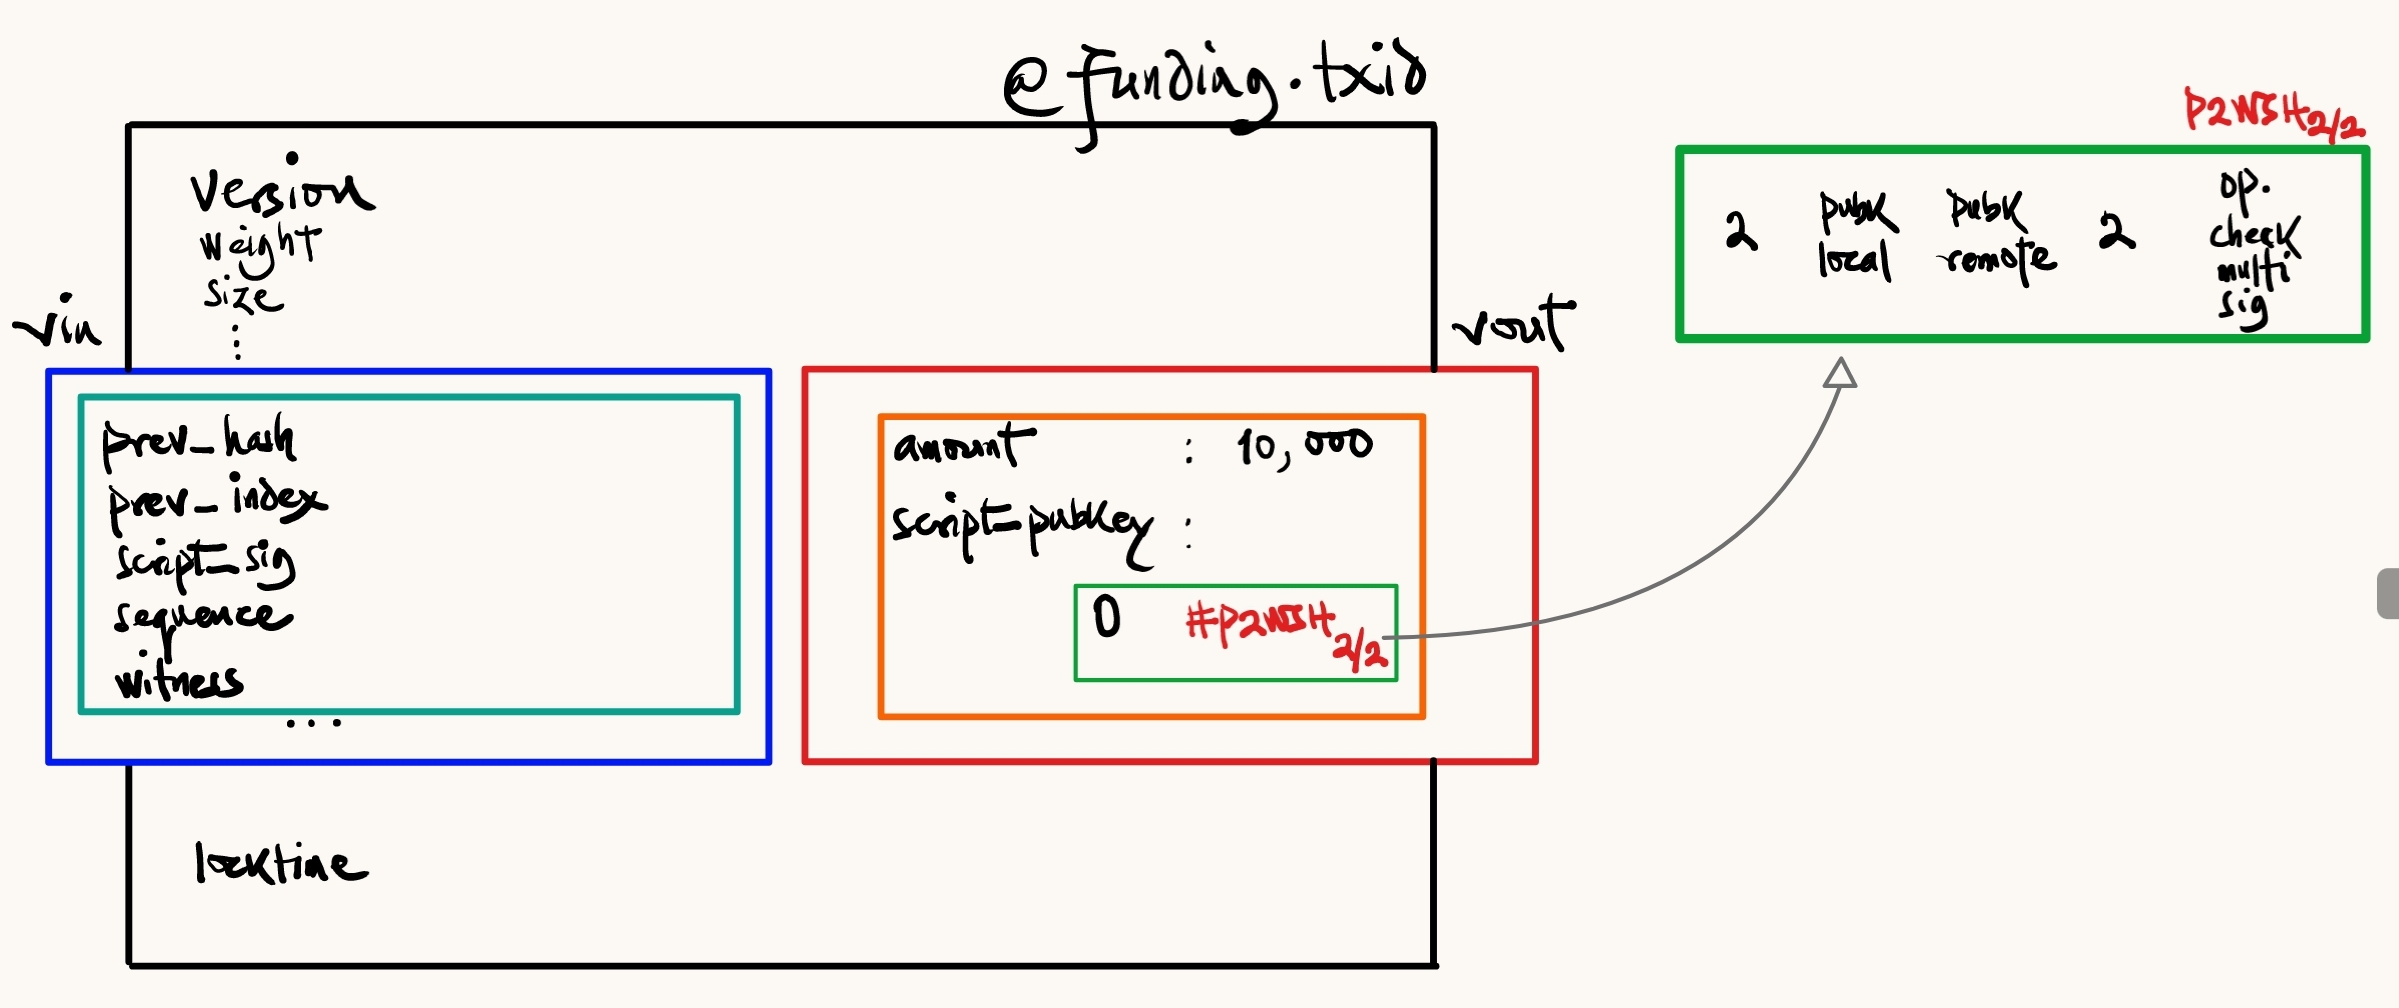 @funding.txid
version
weight
size
⋮
vin
prev_hash
prev_index
script_sig
sequence
witness
...
vout
amount : 10,000
script_pubkey :
0 #P2WSH2/2
locktime
P2WSH2/2
2 pubk local pubk remote 2 op. check multi sig